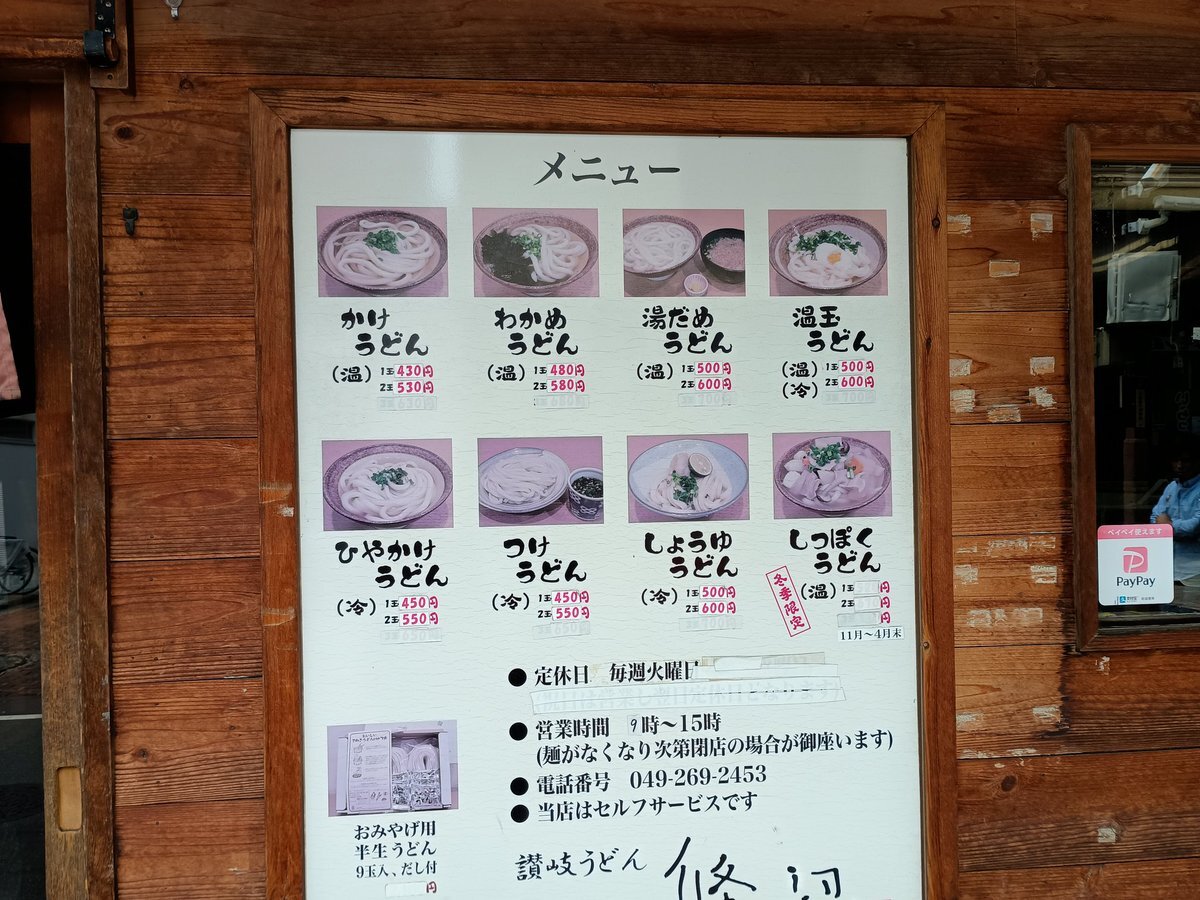 メニュー
かけ
うどん
(温) 1玉430円
2玉530円
わかめ
うどん
(温) 1玉480円
2玉580円
湯だめ
うどん
(温) 1玉500円
2玉600円
温玉
うどん
(温) 1玉500円
(冷) 2玉600円
ひやかけ
うどん
(冷) 1玉450円
2玉550円
つけ
うどん
(冷) 1玉450円
2玉550円
しょうゆ
うどん
(冷) 1玉500円
2玉600円
しっぽく
うどん
冬季限定
(温) 1玉 円
2玉 円
円
11月〜4月末
● 定休日 毎週火曜日
● 営業時間 9時〜15時
(麺がなくなり次第閉店の場合が御座います)
● 電話番号 049-269-2453
● 当店はセルフサービスです
讃岐うどん
おみやげ用
半生うどん
9玉入、だし付
円
ペイペイ使えます
PayPay